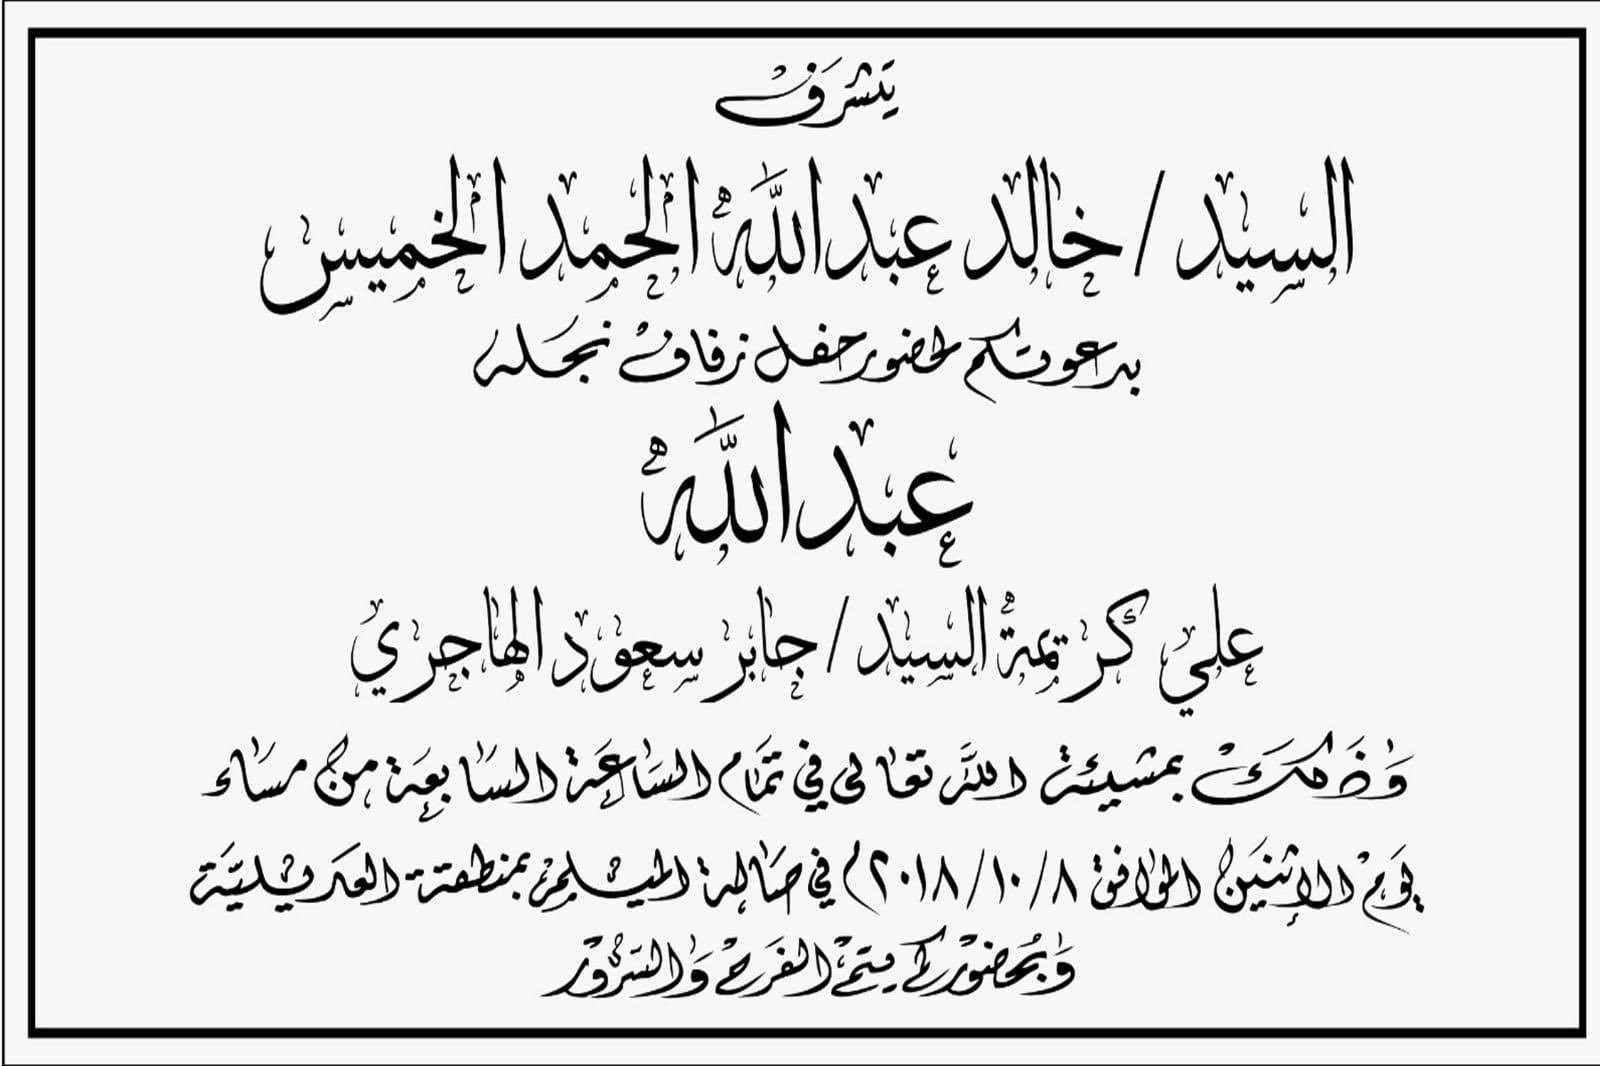 يتشرف
السيد / خالد عبدالله الحمد الخميس
بدعوتكم لحضور حفل زفاف نجله
عبدالله
على كريمة السيد / جابر سعود الهاجري
وَذَلكَ بمشيئة الله تعالى في تمَام السَاعَة السَابعَة من مساء
يَومْ الإثنَين الموَافق ٢٠١٨/١٠/٨م في صَالة الميْلم بمنطقة العديليَّة
وَبحُضُوركم يتمْ الفَرحْ وَالسّرُورْ